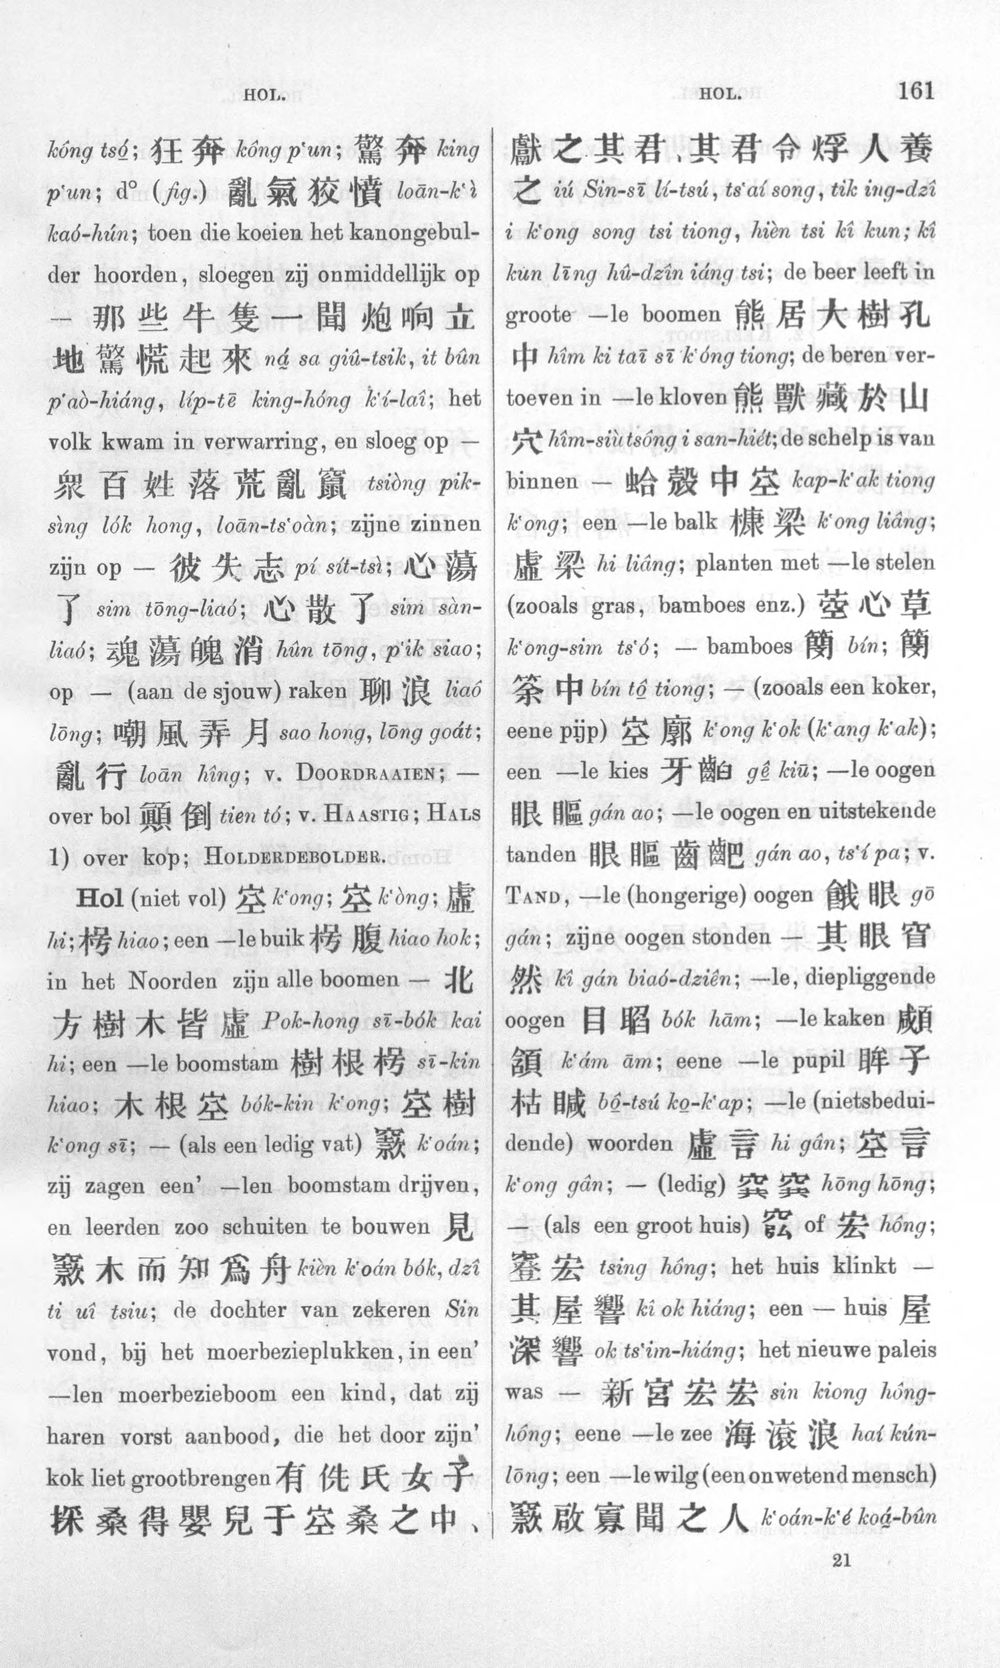 HOL.
kóng tsó̤; 狂奔 kông p‘un; 驚奔 king
p‘un; d° (fig.) 亂氣狡憤 loān-k‘ì
kaó-hún; toen die koeien het kanongebul-
der hoorden, sloegen zij onmiddellijk op
— 那些牛隻一聞炮响立
地驚慌起來 ná̤ sa giû-tsik, it bûn
p‘aò-hiáng, líp-tē king-hóng k‘í-laî; het
volk kwam in verwarring, en sloeg op —
衆百姓落荒亂竄 tsiòng pik-
sìng lók hong, loān-ts‘oàn; zijne zinnen
zijn op — 彼失志 pí sít-tsì; 心蕩
了 sim tōng-liaó; 心散了 sim sàn-
liaó; 魂蕩魄消 hûn tōng, p‘ik siao;
op — (aan de sjouw) raken 聊浪 liaó
lōng; 嘲風弄月 sao hong, lōng goát;
亂行 loān hîng; v. DOORDRAAIEN; —
over bol 顚倒 tien tó; v. HAASTIG; HALS
1) over kop; HOLDERDEBOLDER.
Hol (niet vol) 空 k‘ong; 空 k‘òng; 虛
hi; 枵 hiao; een —le buik 枵腹 hiao hok;
in het Noorden zijn alle boomen — 北
方樹木皆虛 Pok-hong sī-bók kai
hi; een —le boomstam 樹根枵 sī-kin
hiao; 木根空 bók-kin k‘ong; 空樹
k‘ong sī; — (als een ledig vat) 窾 k‘oán;
zij zagen een’ —len boomstam drijven,
en leerden zoo schuiten te bouwen 見
窾木而知爲舟 kièn k‘oán bók, dzî
ti uî tsiu; de dochter van zekeren Sin
vond, bij het moerbezieplukken, in een’
—len moerbezieboom een kind, dat zij
haren vorst aanbood, die het door zijn’
kok liet grootbrengen 有侁氏女子
採桑得嬰兒于空桑之中、
HOL. 161
獻之其君、其君令烰人養
之 iú Sin-sī lí-tsú, ts‘aí song, tik ing-dzî
i k‘ong song tsi tiong, hièn tsi kî kun; kî
kun līng hû-dzîn iáng tsi; de beer leeft in
groote —le boomen 熊居大樹孔
中 hîm ki taī sī k‘óng tiong; de beren ver-
toeven in —le kloven 熊獸藏於山
穴 hîm-siù tsóng i san-hiét; de schelp is van
binnen — 蛤殼中空 kap-k‘ak tiong
k‘ong; een —le balk 槺梁 k‘ong liâng;
虛梁 hi liâng; planten met —le stelen
(zooals gras, bamboes enz.) 莖心草
k‘ong-sim ts‘ó; — bamboes 䉎 bín; 䉎
筡中 bín tô̤ tiong; — (zooals een koker,
eene pijp) 空廓 k‘ong k‘ok (k‘ang k‘ak);
een —le kies 牙齨 gê̤ kiū; —le oogen
眼瞘 gán ao; —le oogen en uitstekende
tanden 眼瞘齒䶕 gán ao, ts‘í pa; v.
TAND, —le (hongerige) oogen 餓眼 gō
gán; zijne oogen stonden — 其眼窅
然 kî gán biaó-dziên; —le, diepliggende
oogen 目䀏 bók hām; —le kaken 顑
頷 k‘ám ām; eene —le pupil 眸子
枯䁍 bô̤-tsú ko̤-k‘ap; —le (nietsbedui-
dende) woorden 虛言 hi gân; 空言
k‘ong gân; — (ledig) 谾谾 hōng hōng;
— (als een groot huis) 竤 of 宏 hông;
窚宏 tsing hông; het huis klinkt —
其屋響 kî ok hiáng; een — huis 屋
深響 ok ts‘im-hiáng; het nieuwe paleis
was — 新宮宏宏 sin kiong hông-
hông; eene —le zee 海滾浪 haí kún-
lōng; een —le wilg (een onwetend mensch)
窾啟寡聞之人 k‘oán-k‘é koá̤-bûn
21